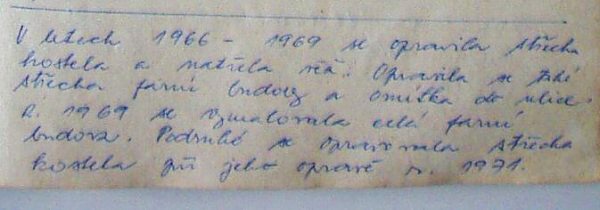 V letech 1966 - 1969 se opravila střecha
kostela a natřela věž. Opravila se též
střecha farní budovy a omítka do ulice.
R. 1969 se vymalovala celá farní
budova. Podruhé se opravovala střecha
kostela při jeho opravě r. 1971.